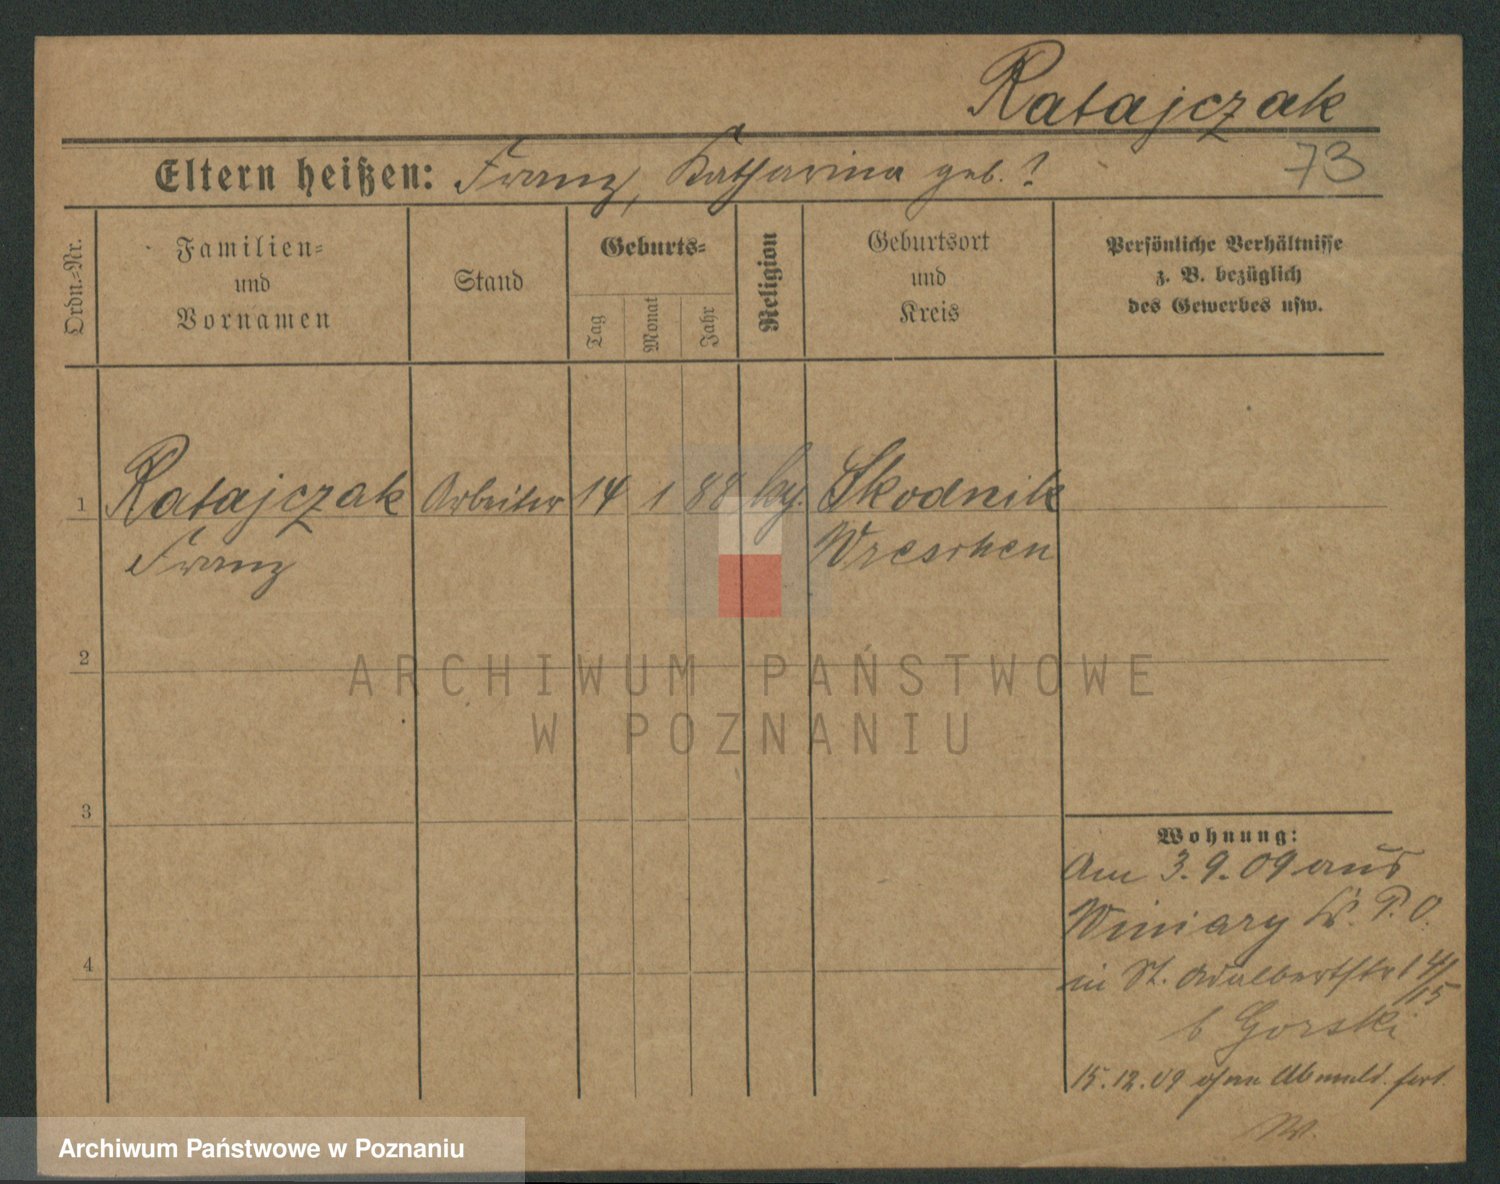 Ratajczak
Eltern heißen: Franz, Katharina geb. ?
73
Ordn.-Nr.
Familien-
und
Vornamen
Stand
Geburts-
Tag
Monat
Jahr
Religion
Geburtsort
und
Kreis
Persönliche Verhältnisse
z. B. bezüglich
des Gewerbes usw.
1 Ratajczak Arbeiter 14 1 88 Skodnik
Franz Wreschen
2
ARCHIWUM PAŃSTWOWE
W POZNANIU
3
Wohnung:
Am 3.9.09 aus
Winiary P. O.
in St. Adalbertstr 14/15
b Gorski
4
15.12.09 ohne Abmeld. fort.
Archiwum Państwowe w Poznaniu